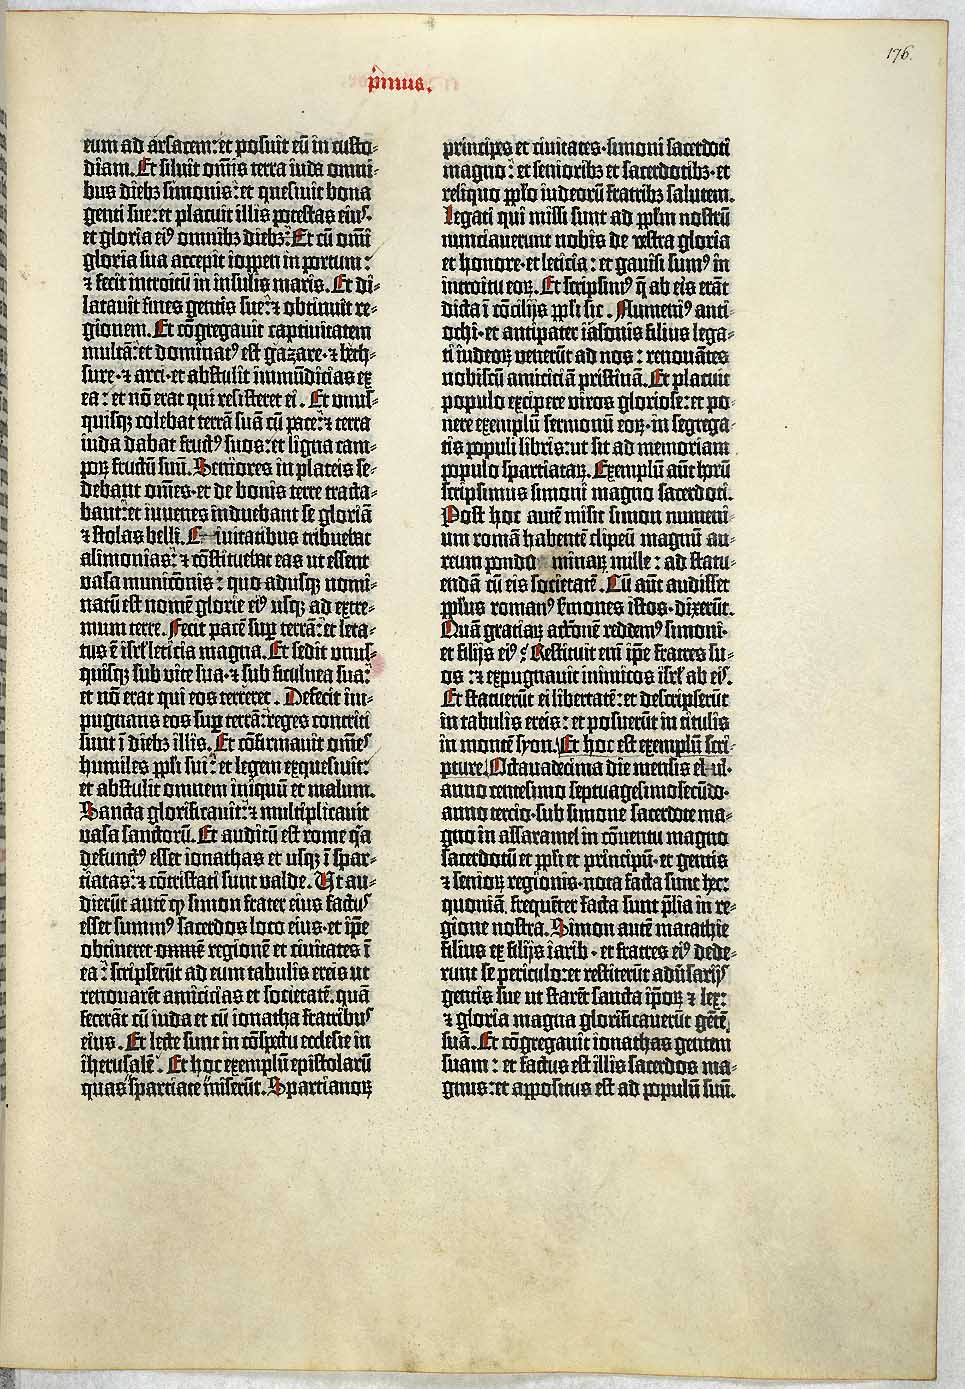 176.
p̄mus.
eum ad arsacem: et posuit eū in custo-
diam. Et siluit om̄is terra iuda omni-
bus diebꝫ simonis: et quesiuit bona
genti sue: et placuit illis potestas eiꝰ.
et gloria eiꝰ omnibꝫ diebꝫ. Et cū om̄i
gloria sua accepit ioppen in portum:
⁊ fecit introitū in insulis maris. Et di-
latauit fines gentis sue: ⁊ obtinuit re-
gionem. Et cōgregauit captiuitatem
multā: et dominatꝰ est gazare · ⁊ beth-
sure · ⁊ arci · et abstulit inmūdicias ex
ea: et nō erat qui resisteret ei. Et unus-
quisqꝫ colebat terrā suā cū pace: ⁊ terra
iuda dabat fructꝰ suos: et ligna cam-
poꝝ fructū suū. Seniores in plateis se-
debant om̄es · et de bonis terre tracta-
bant: et iuuenes induebant se gloriā
⁊ stolas belli. Et ciuitatibus tribuebat
alimonias: ⁊ cōstituebat eas ut essent
vasa municōnis: quo adusqꝫ nomi-
natū est nomē glorie eiꝰ usqꝫ ad extre-
mum terre. Fecit pacē suꝑ terrā: et leta-
tus ē isrl̄ leticia magna. Et sedit unus-
quisqꝫ sub vite sua · ⁊ sub ficulnea sua:
et nō erat qui eos terreret. Defecit im-
pugnans eos suꝑ terrā: reges contriti
sunt ī diebꝫ illis. Et cōfirmauit om̄es
humiles ppl̄i sui: et legem exquesiuit:
et abstulit omnem iniquū et malum.
Sancta glorificauit: ⁊ multiplicauit
vasa sanctorū. Et auditū est rome q̄a
defunctꝰ esset ionathas et usqꝫ ī spar-
tiatas: ⁊ cōtristati sunt valde. Ut au-
dierūt autē ꝙ simon frater eius factus
esset summꝰ sacerdos loco eius · et ip̄e
obtineret omnē regionē et ciuitates ī
ea: scripserūt ad eum tabulis ereis ut
renouarēt amicicias et societatē. quā
fecerāt cū iuda et cū ionatha fratribus
eius. Et lecte sunt in cōspectu ecclesie in
iherusalē. Et hoc exemplū epistolarū
quas spartiate miserūt. Spartianoꝝ
principes et ciuitates · simoni sacerdoti
magno: et senioribꝫ et sacerdotibꝫ · et
reliquo pplo iudeorū fratribꝫ salutem.
Legati qui missi sunt ad pplm̄ nostrū
nunciauerunt nobis de vestra gloria
et honore · et leticia: et gauisi sumꝰ in
introitu eoꝝ. Et scripsimꝰ q̄ ab eis erāt
dicta ī cōcilijs ppl̄i sic. Numeniꝰ anti-
ochi · et antipater iasonis filius lega-
ti iudeoꝝ venerūt ad nos: renouātes
nobiscū amiciciā pristinā. Et placuit
populo excipere viros gloriose: et po-
nere exemplū sermonū eoꝝ · in segrega-
tis populi libris: ut sit ad memoriam
populo spartiataꝝ. Exemplū aūt horū
scripsimus simoni magno sacerdoti.
Post hoc autē misit simon numeni-
um romā habentē clipeū magnū au-
reum pondo minaꝝ mille: ad statu-
endā cū eis societatē. Cū aūt audisset
pplus romanꝰ s̄mones istos · dixerūt.
Quā gratiaꝝ actionē reddemꝰ simoni ·
et filijs eiꝰ? Restituit eni ip̄e fratres su-
os: ⁊ expugnauit inimicos isrl̄ ab eiꝰ.
Et statuerūt ei libertatē: et descripserūt
in tabulis ereis: et posuerūt in titulis
in monte syon. Et hoc est exemplū scri-
pture. Octauadecima die mensis elul ·
anno centesimo septuagesimosecūdo ·
anno tercio · sub simone sacerdote ma-
gno in assaramel in cōuentu magno
sacerdotū et ppl̄i et principū · et gentis
⁊ senioꝝ regionis · nota facta sunt hec:
quoniā frequēter facta sunt p̄lia in re-
gione nostra. Simon autē matathie
filius ex filijs iarib · et fratres eiꝰ dede-
runt se periculo: et restiterūt adūsarijs
gentis sue ut starēt sancta ip̄oꝝ ⁊ lex:
⁊ gloria magna glorificauerūt gētē
suā. Et cōgregauit ionathas gentem
suam: et factus est illis sacerdos ma-
gnus: et appositus est ad populū suū.